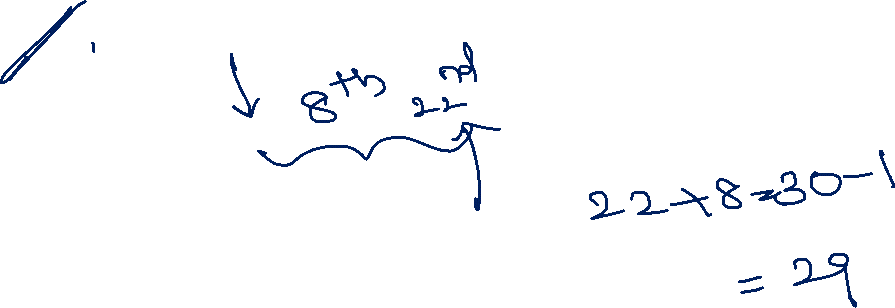 8th 22nd
22+8=30-1
= 29